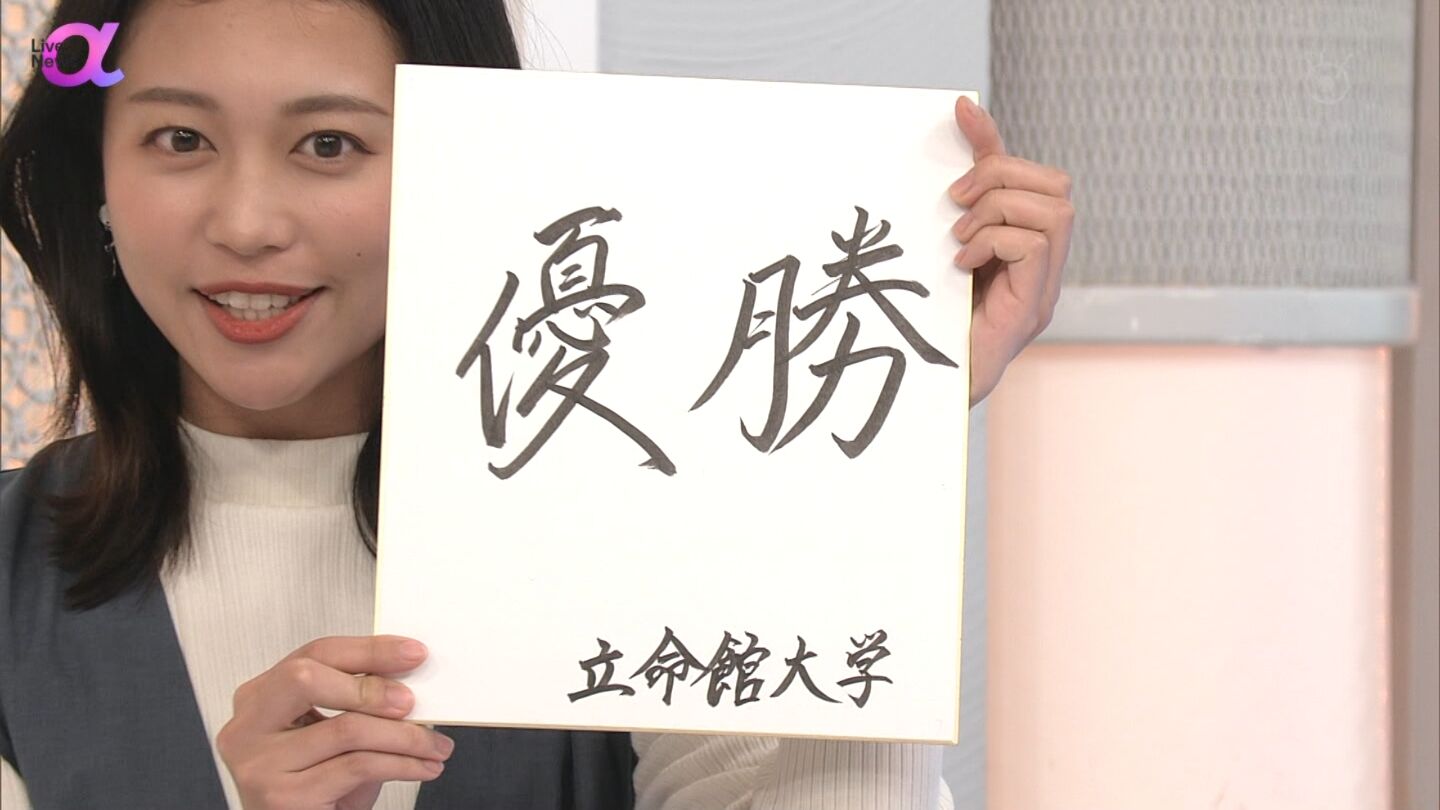 Live
News α
優勝
立命館大学